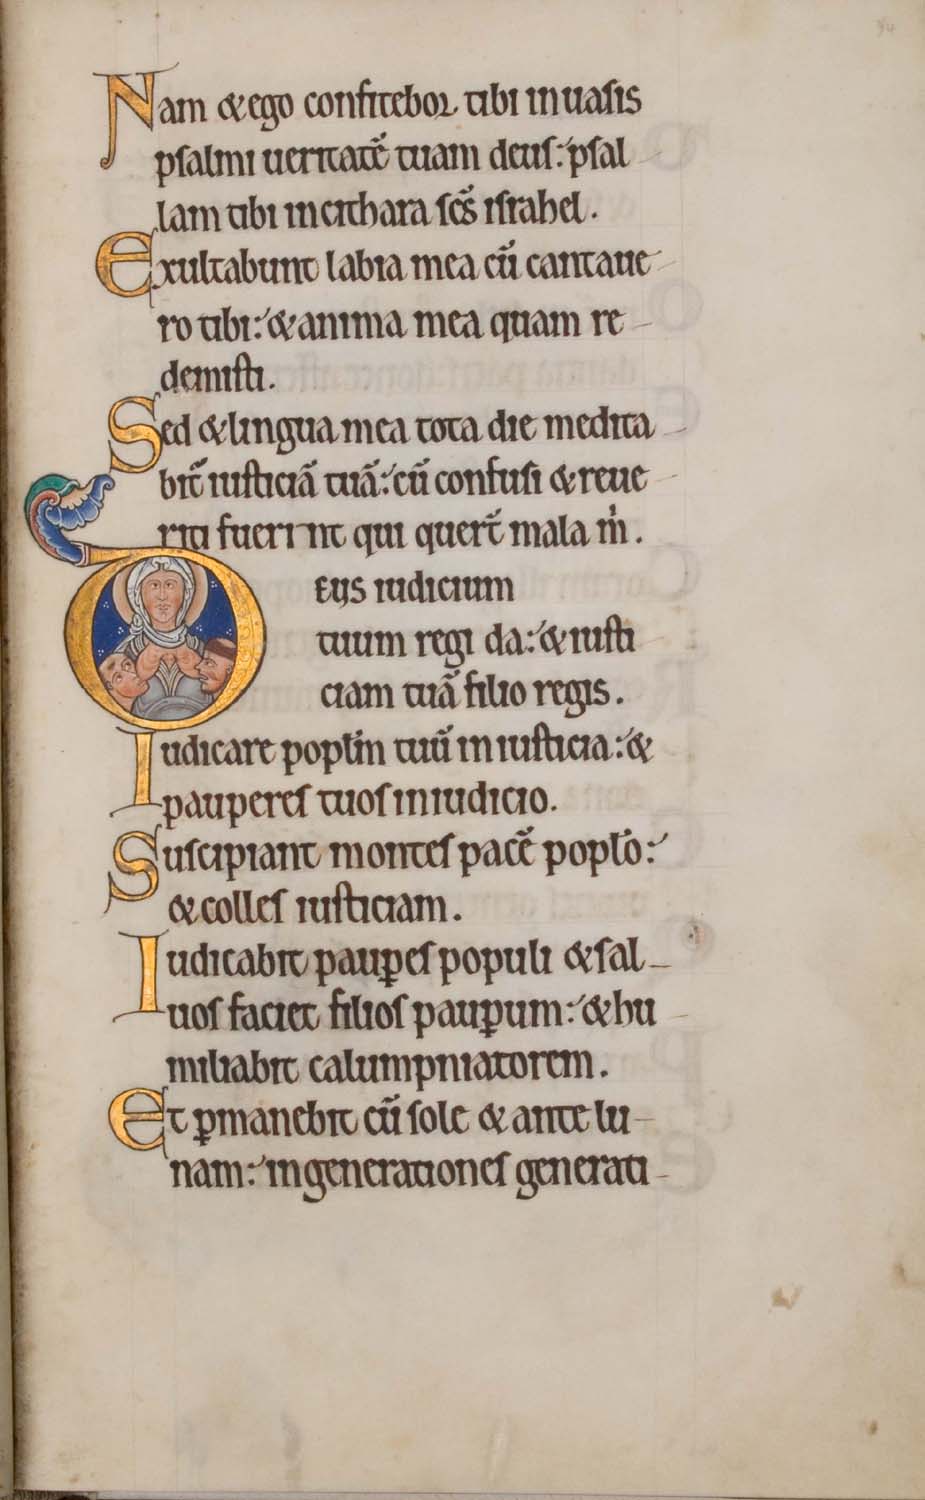 Nam & ego confitebor tibi in uasis
psalmi ueritatē tuam deus: psal
lam tibi in cithara scs̄ israhel.
Exultabunt labia mea cū cantaue
ro tibi: & anima mea quam re
demisti.
Sed & lingua mea tota die medita
bit̄ iusticiā tuā: cū confusi & reue
riti fuerint qui quer̄t mala m̍.
Deus iudicium
tuum regi da: & iusti
ciam tuā filio regis.
Iudicare popłm tuū in iusticia: &
pauperes tuos in iudicio.
Suscipiant montes pacē popło:
& colles iusticiam.
Iudicabit pauꝑes populi & sal
uos faciet filios pauꝑum: & hu
miliabit calumpniatorem.
Et ꝑmanebit cū sole & ante lu
nam: in generationes generati